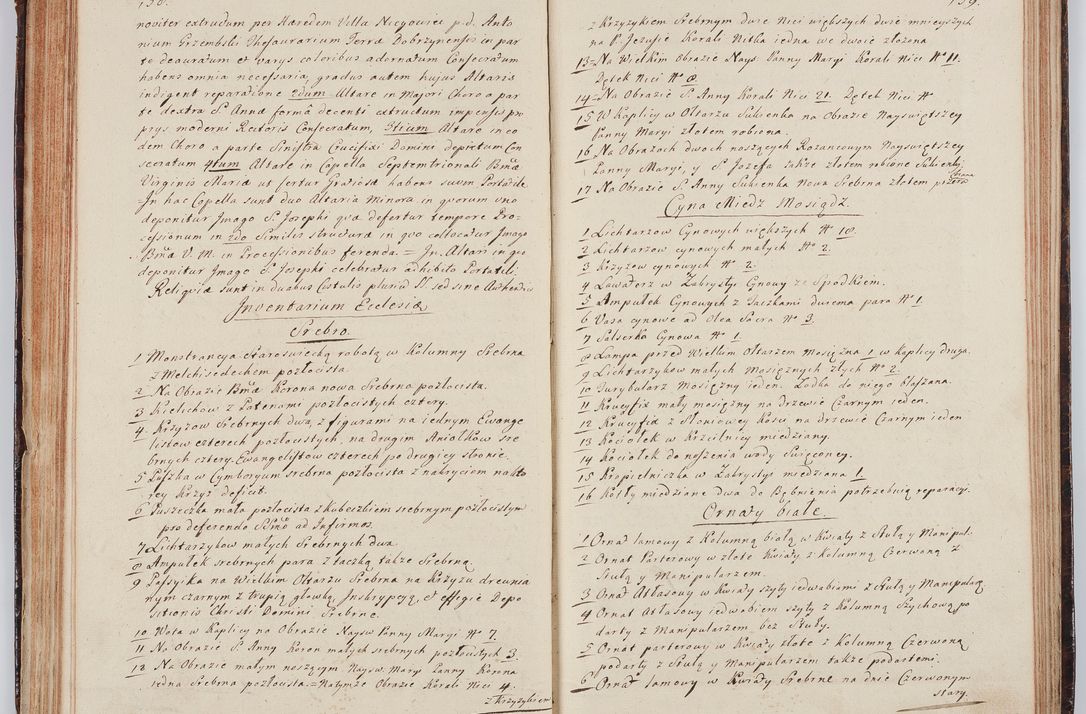 noviter extructum per Hæredem Villæ Niegowiec p.d. Anto
nium Grzembski Thesaurarium Terræ Dobrzynensis in par
te deauratum et varys coloribus adornatum Consecratum
habens omnia necessaria, gradus autem hujus Altaris
indigent reparatione 2dum Altare in Majori Choro a par
te dextra S. Annæ formâ decenti extructum impensis pro
prys moderni Rectoris Consecratum, 3tium Altare in eo
dem Choro a parte Sinistra Crucifixi Domini depictum Con
secratum 4tum Altare in Capella Septemtrionali Bmæ
Virginis Mariæ ut fertur Gratiosæ habens suum Portatile
In hac Capella sunt duo Altaria Minora in quorum uno
deponitur Imago S. Josephi quæ defertur tempore Pro-
cessionum in 2do Similis structuræ in quo collocatur Imago
Bmæ V. M. in Processionibus ferenda. = In Altari in quo
deponitur Imago S. Josephi celebratur adhibito Portatili.
Reliquiæ sunt in duabus Cistulis plures SS. sed sine Authenticis
Inventarium Ecclesiæ
Srebro.
1 Monstrancya Staroswiecką robotą w Kolumny Srebrna
z Melchisedechem pozłocista.
2 Na Obrazie Bmæ Korona nowa Srebrna pozłocista.
3 Kielichow z Patenami pozłocistych cztery.
4 Krzyżow Srebrnych dwa z figurami na iednym Ewange
listow czterech pozłocistych, na drugim Aniołkow sre
brnych cztery. Ewangelistow czterech po drugiey stronie.
5 Puszka w Cymboryum srebrna pozłocista z nakryciem na kto
rey Krzyż deficit.
6 Puszeczka mała pozłocista z kubeczkiem srebrnym pozłocistym
pro deferendo SSmo ad Infirmos.
7 Lichtarzykow małych Srebrnych dwa
8 Ampułek srebrnych para z tacką także Srebrną
9 Passyika na Wielkim Ołtarzu Srebrna na Krzyżu drewnia
nym czarnym z trupią głowką, Inskrypcyą, & effigie Depo
sitionis Christi Domini Srebrne.
10 Wota w Kaplicy na Obrazie Nayśw Panny Maryi № 7.
11 Na Obrazie S. Anny Koron małych srebrnych pozłocistych 3.
12 Na Obrazie małym noszącym Nayśw. Maryi Panny Korona
iedna Srebrna pozłocista. = Natymże Obrazie Korali Nici 4.
z Krzyżykiem
159.
z Krzyżykiem Srebrnym dwie Nici większych dwie mnieyszych
na P. Jezusie Korali Nitka iedna we dwoie złożona
13 = Na Wielkim Obrazie Nayś Panny Maryi Korali Nici № 11.
Dętek Nici № 8.
14 = Na Obrazie S. Anny Korali Nici 21. Dętek Nici №
15 W Kaplicy w Ołtarzu Sukienka na Obrazie Nayświętszey
Panny Maryi złotem robiona.
16 Na Obrazach dwoch noszących Rożancowym Nayświętszey
Panny Maryi, y S. Jozefa także złotem robione sukienki.
17 Na Obrazie S. Anny Sukienka Nowa Srebrna złotem przero
biana
Cyna Miedz Mosiądz
1 Lichtarzow Cynowych większych № 10.
2 Lichtarzow cynowych małych № 2.
3 Krzyżow cynowych № 2.
4 Lawaterz w Zakrystyi Cynowy ze Spodkiem.
5 Ampułek Cynowych z Tackami dwiema para № 1.
6 Vasa cynowe ad Olea Sacra № 3.
7 Salserka Cynowa № 1.
8 Lampa przed Wielkim Ołtarzem Mosięzna 1 w Kaplicy druga.
9 Lichtarzykow małych Mosięznych złych № 2.
10 Turybularz Mosięzny ieden. Łodka do niego blaszana.
11 Krucyfix mały mosięzny na drzewie Czarnym ieden.
12 Krucyfix z Słoniowey Kości na drzewie Czarnym ieden
13 Kociołek w Krzcilnicy miedziany.
14 Kociołek do noszenia wody Swięconey.
15 Kropielniczka w Zakrystyi miedziana 1
16 Kotły miedziane dwa do Bębnienia potrzebuią reparacyi.
Ornaty białe.
1 Ornat lamowy z Kolumną białą w Kwiaty z Stułą y Manipul.
2 Ornat Parterowy w złote Kwiaty z kolumną Czerwoną z
Stułą y Manipularzem.
3 Ornat Atłasowy w Kwiaty szyty iedwabiami z Stułą y Manipularz
4 Ornat Atłasowy iedwabiem szyty z Kolumną Szychową po
darty z Manipularzem, bez Stuły.
5 Ornat parterowy w Kwiaty złote z kolumną Czerwoną
podarty z Stułą y Manipularzem także podartemi.
6 Ornat lamowy w Kwiaty Srebrne na dnie Czerwonym
stary.